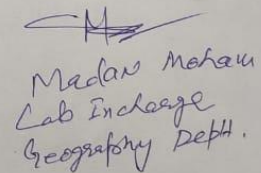 Madan Mohan
Lab Incharge
Geography Deptt.